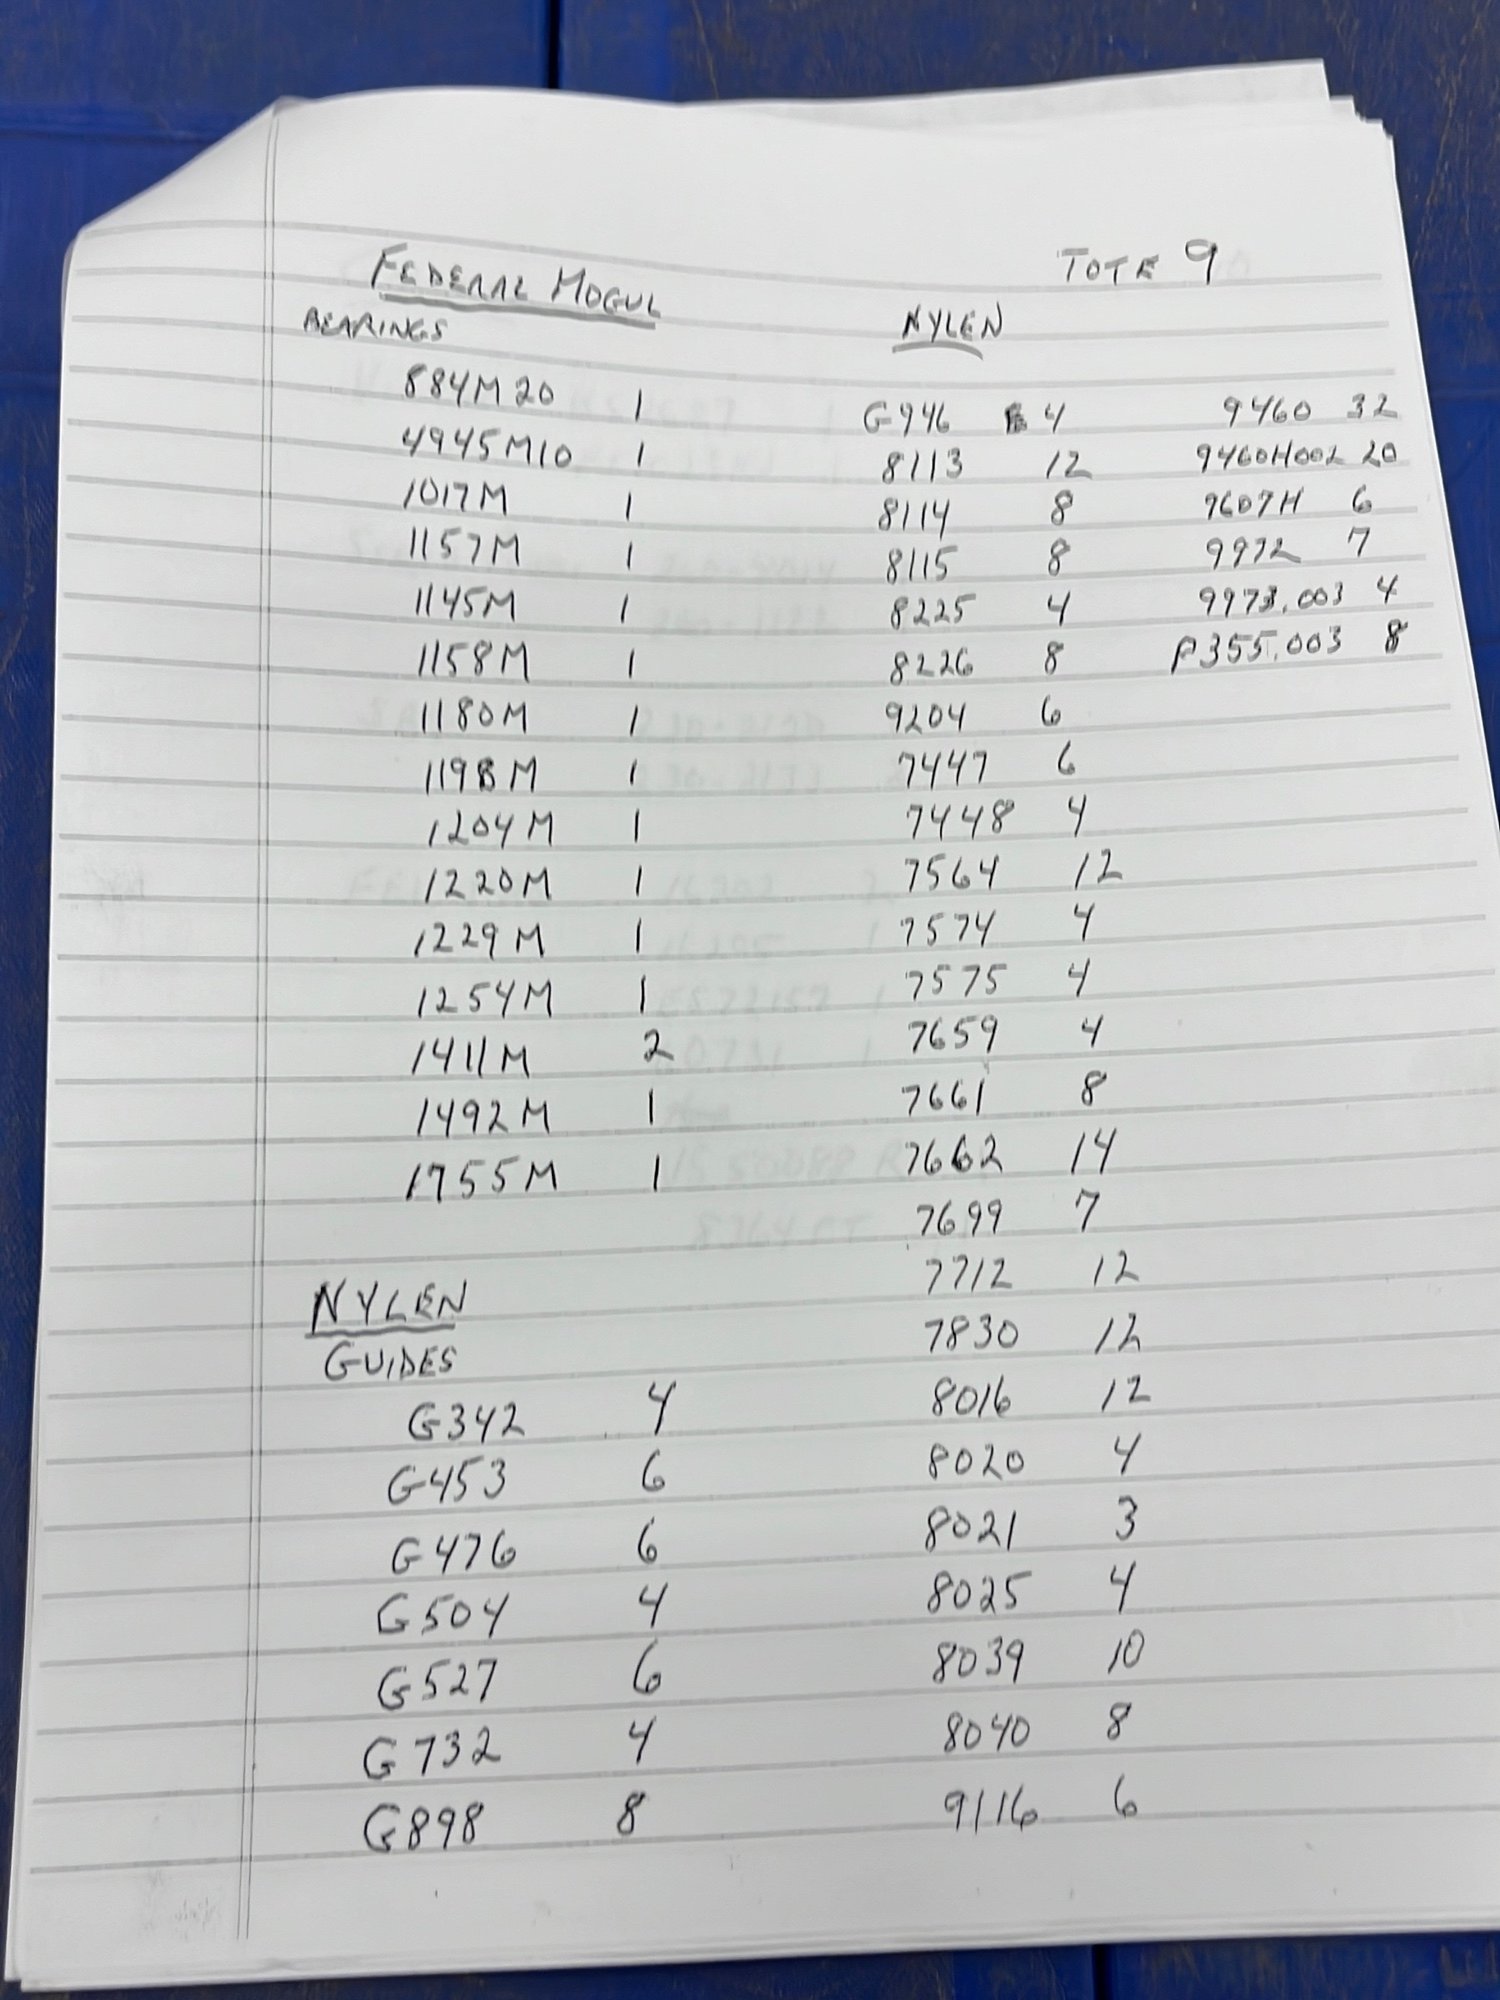 TOTE 9
FEDERAL MOGUL
BEARINGS
884M20 1
4945M10 1
1017M 1
1157M 1
1145M 1
1158M 1
1180M 1
1198M 1
1204M 1
1220M 1
1229M 1
1254M 1
1411M 2
1492M 1
1755M 1
NYLEN
GUIDES
G342 4
G453 6
G476 6
G504 4
G527 6
G732 4
G898 8
NYLEN
G946 4
8113 12
8114 8
8115 8
8225 4
8226 8
9204 6
7447 6
7448 4
7564 12
7574 4
7575 4
7659 4
7661 8
7662 14
7699 7
7712 12
7830 12
8016 12
8020 4
8021 3
8025 4
8039 10
8040 8
9116 6
9460 32
9460H002 20
9607H 6
9972 7
9973.003 4
P355.003 8